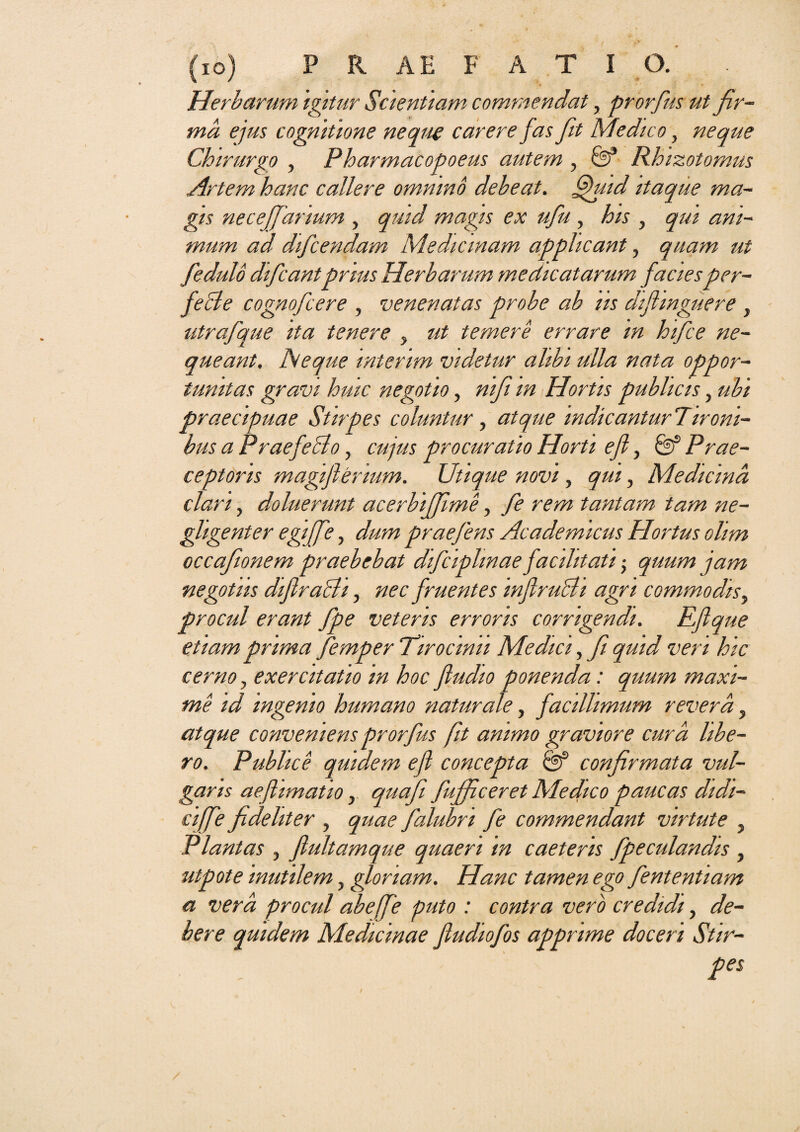 (10) PRAEFATIO.
Herbarum igitur Scientiam commendat, prorſus ut fir-
mâ ejus cognitione neque carere fas ſit Medico, neque
Chirurgo, Pharmacopoeus autem, & Rhizotomus
Artem hanc callere omninò debeat. Quid itaque ma-
gis neceſſarium, quid magis ex uſu, his, qui ani-
mum ad diſcendam Medicinam applicant, quam ut
ſedulò diſcant prius Herbarum medicatarum facies per-
fecte cognoſcere, venenatas probe ab iis diſtinguere,
utraſque ita tenere, ut temerê errare in hiſce ne-
queant. Neque interim videtur alibi ulla nata oppor-
tunitas gravi huic negotio, niſi in Hortis publicis, ubi
praecipuae Stirpes coluntur, atque indicantur Tironi-
bus a Praefecto, cujus procuratio Horti eſt, & Prae-
ceptoris magiſterium. Utique novi, qui, Medicinâ
clari, doluerunt acerbiſſimê, ſe rem tantam tam ne-
gligenter egiſſe, dum praeſens Academicus Hortus olim
occaſionem praebebat diſciplinae facilitati; quum jam
negotiis diſtracti, nec fruentes inſtructi agri commodis,
procul erant ſpe veteris erroris corrigendi. Eſtque
etiam prima ſemper Tirocinii Medici, ſi quid veri hic
cerno, exercitatio in hoc ſtudio ponenda: quum maxi-
mê id ingenio humano naturale, facillimum reverâ,
atque conveniens prorſus ſit animo graviore curâ libe-
ro. Publicê quidem eſt concepta & confirmata vul-
garis aeſtimatio, quaſi ſufficeret Medico paucas didi-
ciſſe fideliter, quae ſalubri ſe commendant virtute,
Plantas, ſtultamque quaeri in caeteris ſpeculandis,
utpote inutilem, gloriam. Hanc tamen ego ſententiam
a verâ procul abeſſe puto: contra verò credidi, de-
bere quidem Medicinae ſtudioſos apprime doceri Stir-
pes